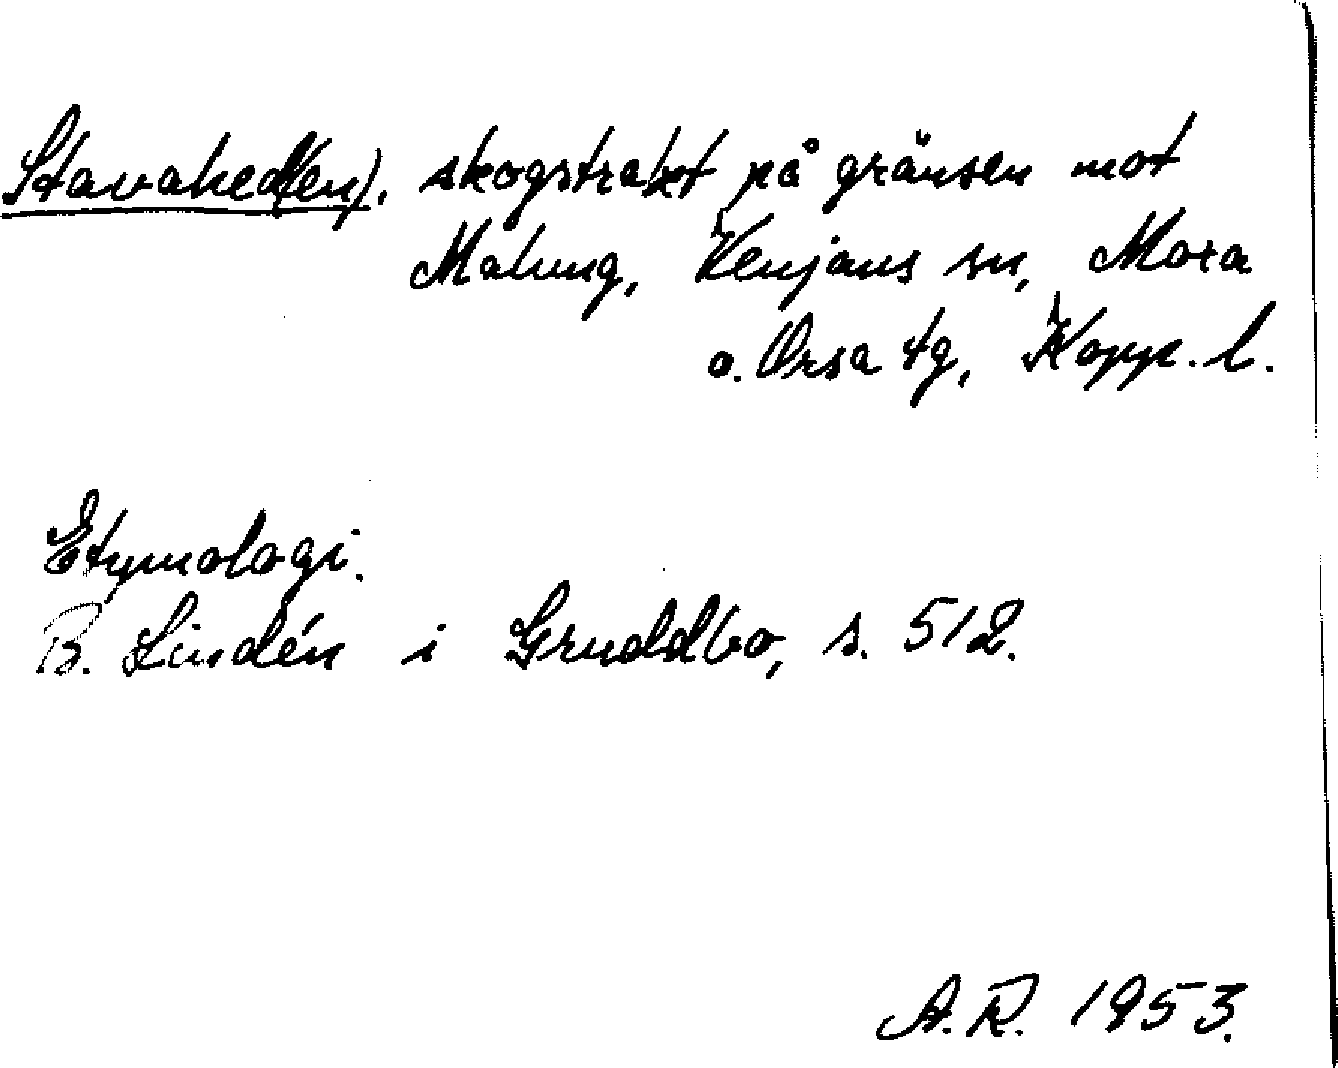 Stavahed(en), skogstrakt på gränsen mot
Malung, Venjans sn, Mora
o. Orsa tg, Kopp. l.
Etymologi.
B. Lindén i Gruddbo, s. 512.
A.R. 1953.